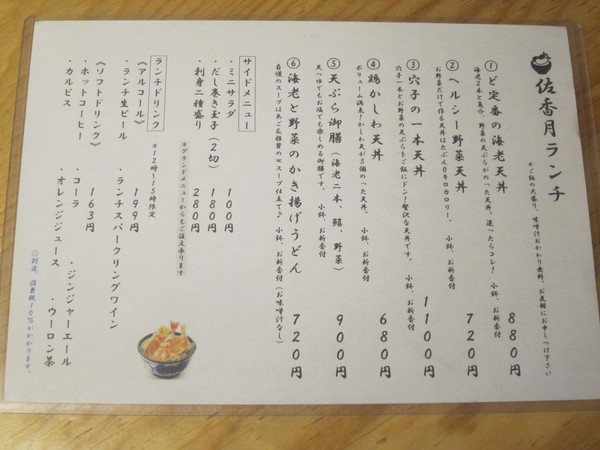 佐香月ランチ
※ご飯の大盛り、味噌汁おかわり無料、お気軽にお申しつけ下さい
①ど定番の海老天丼 880円
海老2本と魚介、野菜の天ぷらがのった天丼。迷ったらコレ! 小鉢、お新香付
②ヘルシー野菜天丼 720円
お野菜だけで作る天丼はたぶん0キロカロリー。 小鉢、お新香付
③穴子の一本天丼 1100円
穴子一本とお野菜の天ぷらをご飯にドン!贅沢な天丼です。 小鉢、お新香付
④鶏かしわ天丼 680円
ボリューム満点!かしわ天が5個のった天丼。 小鉢、お新香付
⑤天ぷら御膳(海老二本、鶏、野菜) 900円
天つゆでもお塩でも楽しめる御膳です。 小鉢、お新香付
⑥海老と野菜のかき揚げうどん 720円
自慢のスープはあご&椎茸のWスープ仕立て♪ 小鉢、お新香付(お味噌汁なし)
サイドメニュー
・ミニサラダ 100円
・だし巻き玉子(2切) 180円
・刺身二種盛り 280円
※グランドメニューからもご注文承ります
ランチドリンク ※12時~15時限定
《アルコール》 199円
・ランチ生ビール ・ランチスパークリングワイン
《ソフトドリンク》 163円
・ホットコーヒー ・コーラ ・ジンジャーエール
・カルピス ・オレンジジュース ・ウーロン茶
◎別途、消費税10%がかかります。